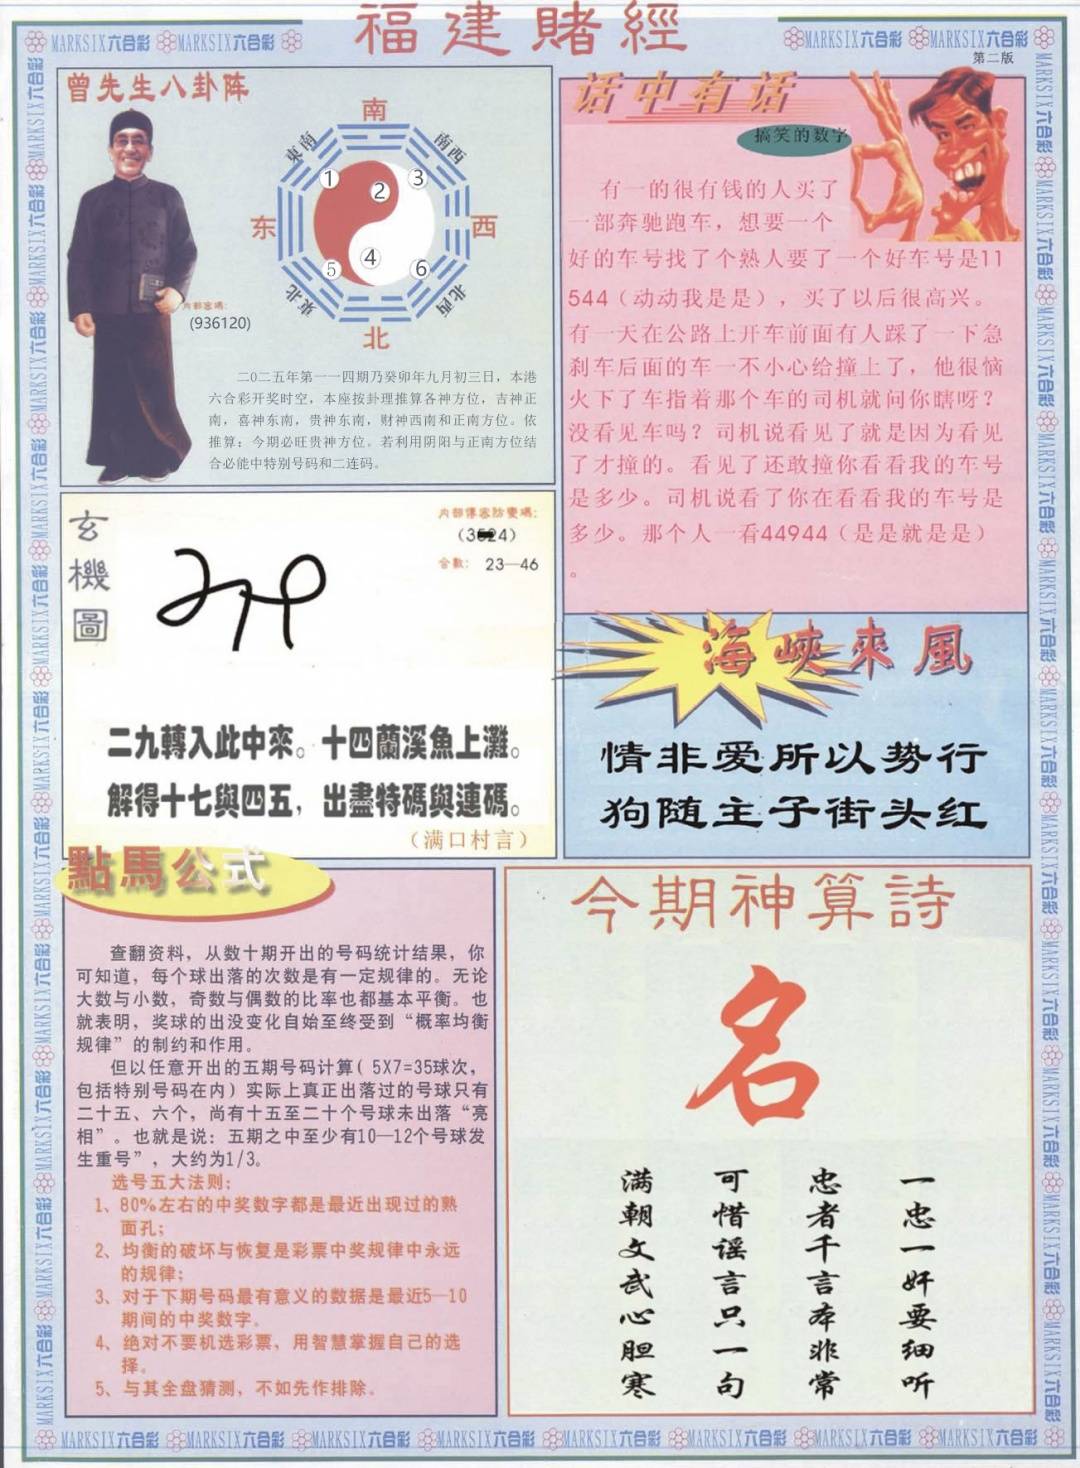 福建賭經
MARKSIX六合彩 MARKSIX六合彩 MARKSIX六合彩 MARKSIX六合彩
第二版
曾先生八卦阵
南
東南
南西
① ② ③
东
西
④ ⑤ ⑥
東北
北西
北
内部密碼:
(936120)
二〇二五年第一一四期乃癸卯年九月初三日，本港
六合彩开奖时空，本座按卦理推算各神方位，吉神正
南，喜神东南，贵神东南，财神西南和正南方位。依
推算：今期必旺贵神方位。若利用阴阳与正南方位结
合必能中特别号码和二连码。
话中有话
搞笑的数字
有一的很有钱的人买了
一部奔驰跑车，想要一个
好的车号找了个熟人要了一个好车号是11
544（动动我是是），买了以后很高兴。
有一天在公路上开车前面有人踩了一下急
刹车后面的车一不小心给撞上了，他很恼
火下了车指着那个车的司机就问你瞎呀？
没看见车吗？司机说看见了就是因为看见
了才撞的。看见了还敢撞你看看我的车号
是多少。司机说看了你在看看我的车号是
多少。那个人一看44944（是是就是是）
。
玄機圖
内部傳密防變碼:
合數: 23—46
二九轉入此中來。十四蘭溪魚上灘。
解得十七與四五，出盡特碼與連碼。
（满口村言）
海峽來風
情非爱所以势行
狗随主子街头红
點馬公式
查翻资料，从数十期开出的号码统计结果，你
可知道，每个球出落的次数是有一定规律的。无论
大数与小数，奇数与偶数的比率也都基本平衡。也
就表明，奖球的出没变化自始至终受到“概率均衡
规律”的制约和作用。
但以任意开出的五期号码计算( 5X7=35球次，
包括特别号码在内）实际上真正出落过的号球只有
二十五、六个，尚有十五至二十个号球未出落“亮
相”。也就是说：五期之中至少有10—12个号球发
生重号”，大约为1/3。
选号五大法则：
1、80%左右的中奖数字都是最近出现过的熟
面孔；
2、均衡的破坏与恢复是彩票中奖规律中永远
的规律；
3、对于下期号码最有意义的数据是最近5—10
期间的中奖数字。
4、绝对不要机选彩票，用智慧掌握自己的选
择。
5、与其全盘猜测，不如先作排除。
今期神算詩
名
一忠一奸要细听
忠者千言本非常
可惜谣言只一句
满朝文武心胆寒
MARKSIX六合彩 MARKSIX六合彩 MARKSIX六合彩 MARKSIX六合彩 MARKSIX六合彩 MARKSIX六合彩 MARKSIX六合彩 MARKSIX六合彩